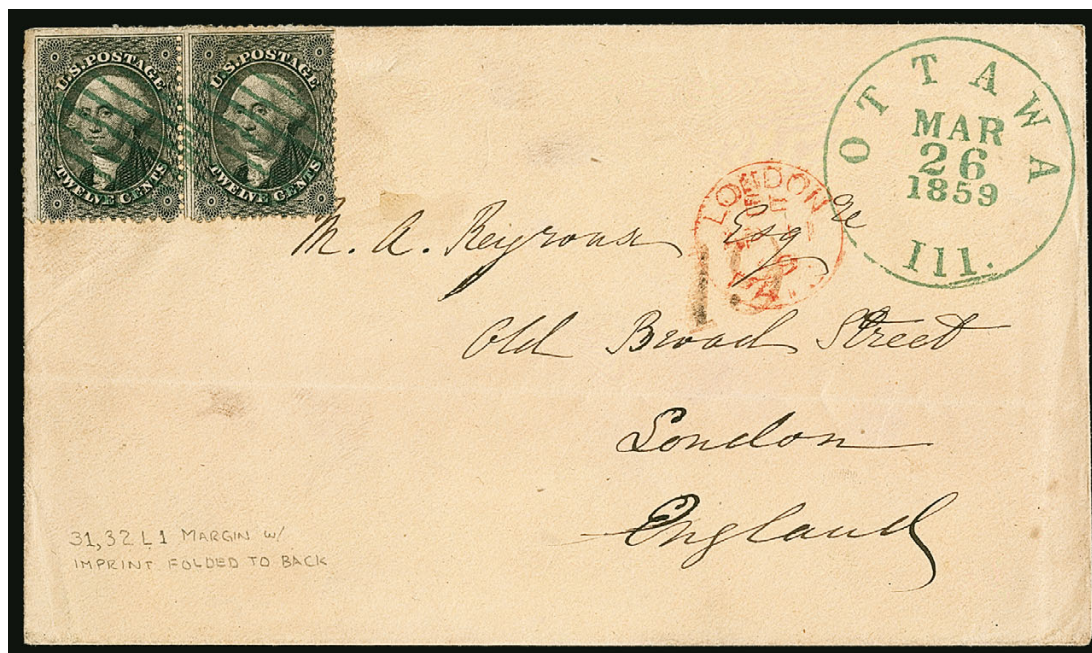 U.S. POSTAGE
TWELVE CENTS
U.S. POSTAGE
TWELVE CENTS
OTTAWA
MAR
26
1859
Ill.
LONDON
M. A. Esqre
Old Broad Street
London
England
31, 32 L 1 MARGIN W/
IMPRINT FOLDED TO BACK